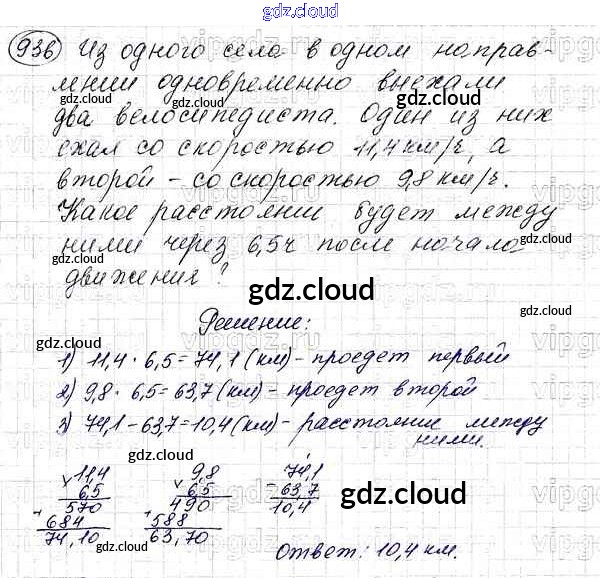 gdz.cloud
936 Из одного села в одном направ-
лении одновременно выехали
два велосипедиста. Один из них
ехал со скоростью 11,4 км/ч, а
второй – со скоростью 9,8 км/ч.
Какое расстоянии будет между
ними через 6,5ч после начала
движения?
gdz.cloud
Решение:
1) 11,4 · 6,5 = 74,1 (км) - проедет первый
2) 9,8 · 6,5 = 63,7 (км) - проедет второй
3) 74,1 - 63,7 = 10,4 (км) - расстояние между
ними.
× 11,4 × 9,8 - 74,1
6,5 6,5 63,7
+ 570 + 490 10,4
684 588
74,10 63,70
gdz.cloud
Ответ: 10,4 км.